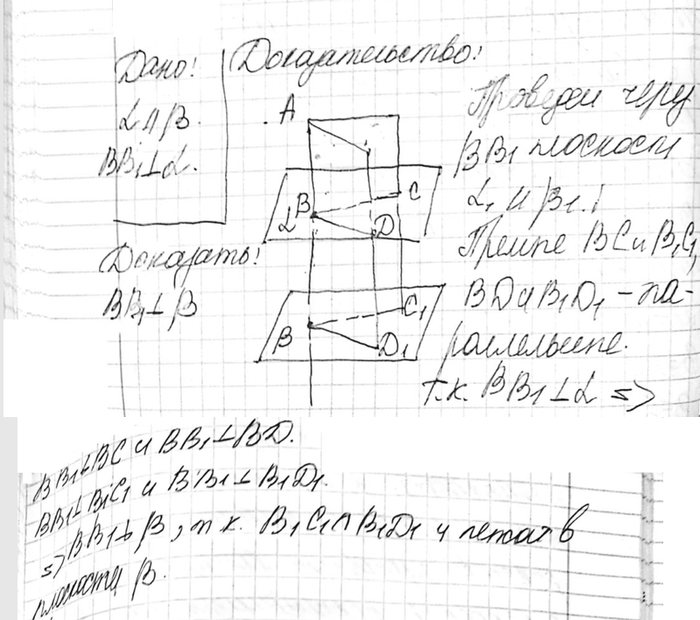 Дано! Доказательство!
α II β.
BB₁⊥α.
Доказать!
BB₁⊥β
A
B
C
α
D
B
C₁
D₁
Проведем через
BB₁ плоскости
α₁ и β₁.
Прямые BC и B₁C₁,
BD и B₁D₁ – па-
раллельные.
т.к. BB₁⊥α =>
BB₁⊥BC и BB₁⊥BD.
BB₁⊥B₁C₁ и BB₁⊥B₁D₁.
=> BB₁⊥β, т.к. B₁C₁∩B₁D₁ и лежат в
плоскости β.